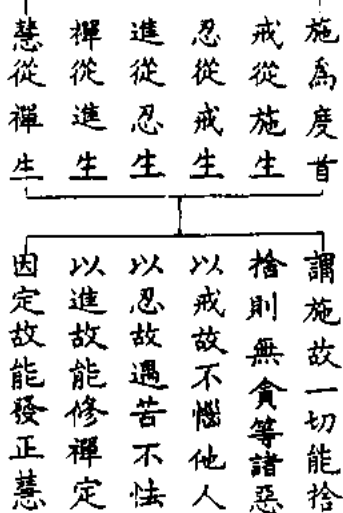 施為度首
戒從施生
忍從戒生
進從忍生
禪從進生
慧從禪生
謂施故一切能捨
捨則無貪等諸惡
以戒故不惱他人
以忍故遇苦不怯
以進故能修禪定
因定故能發正慧